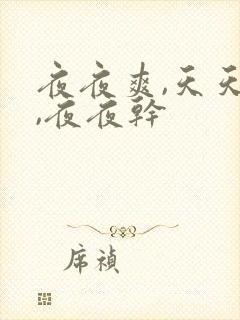 夜夜爽,天天
,夜夜幹
席禎